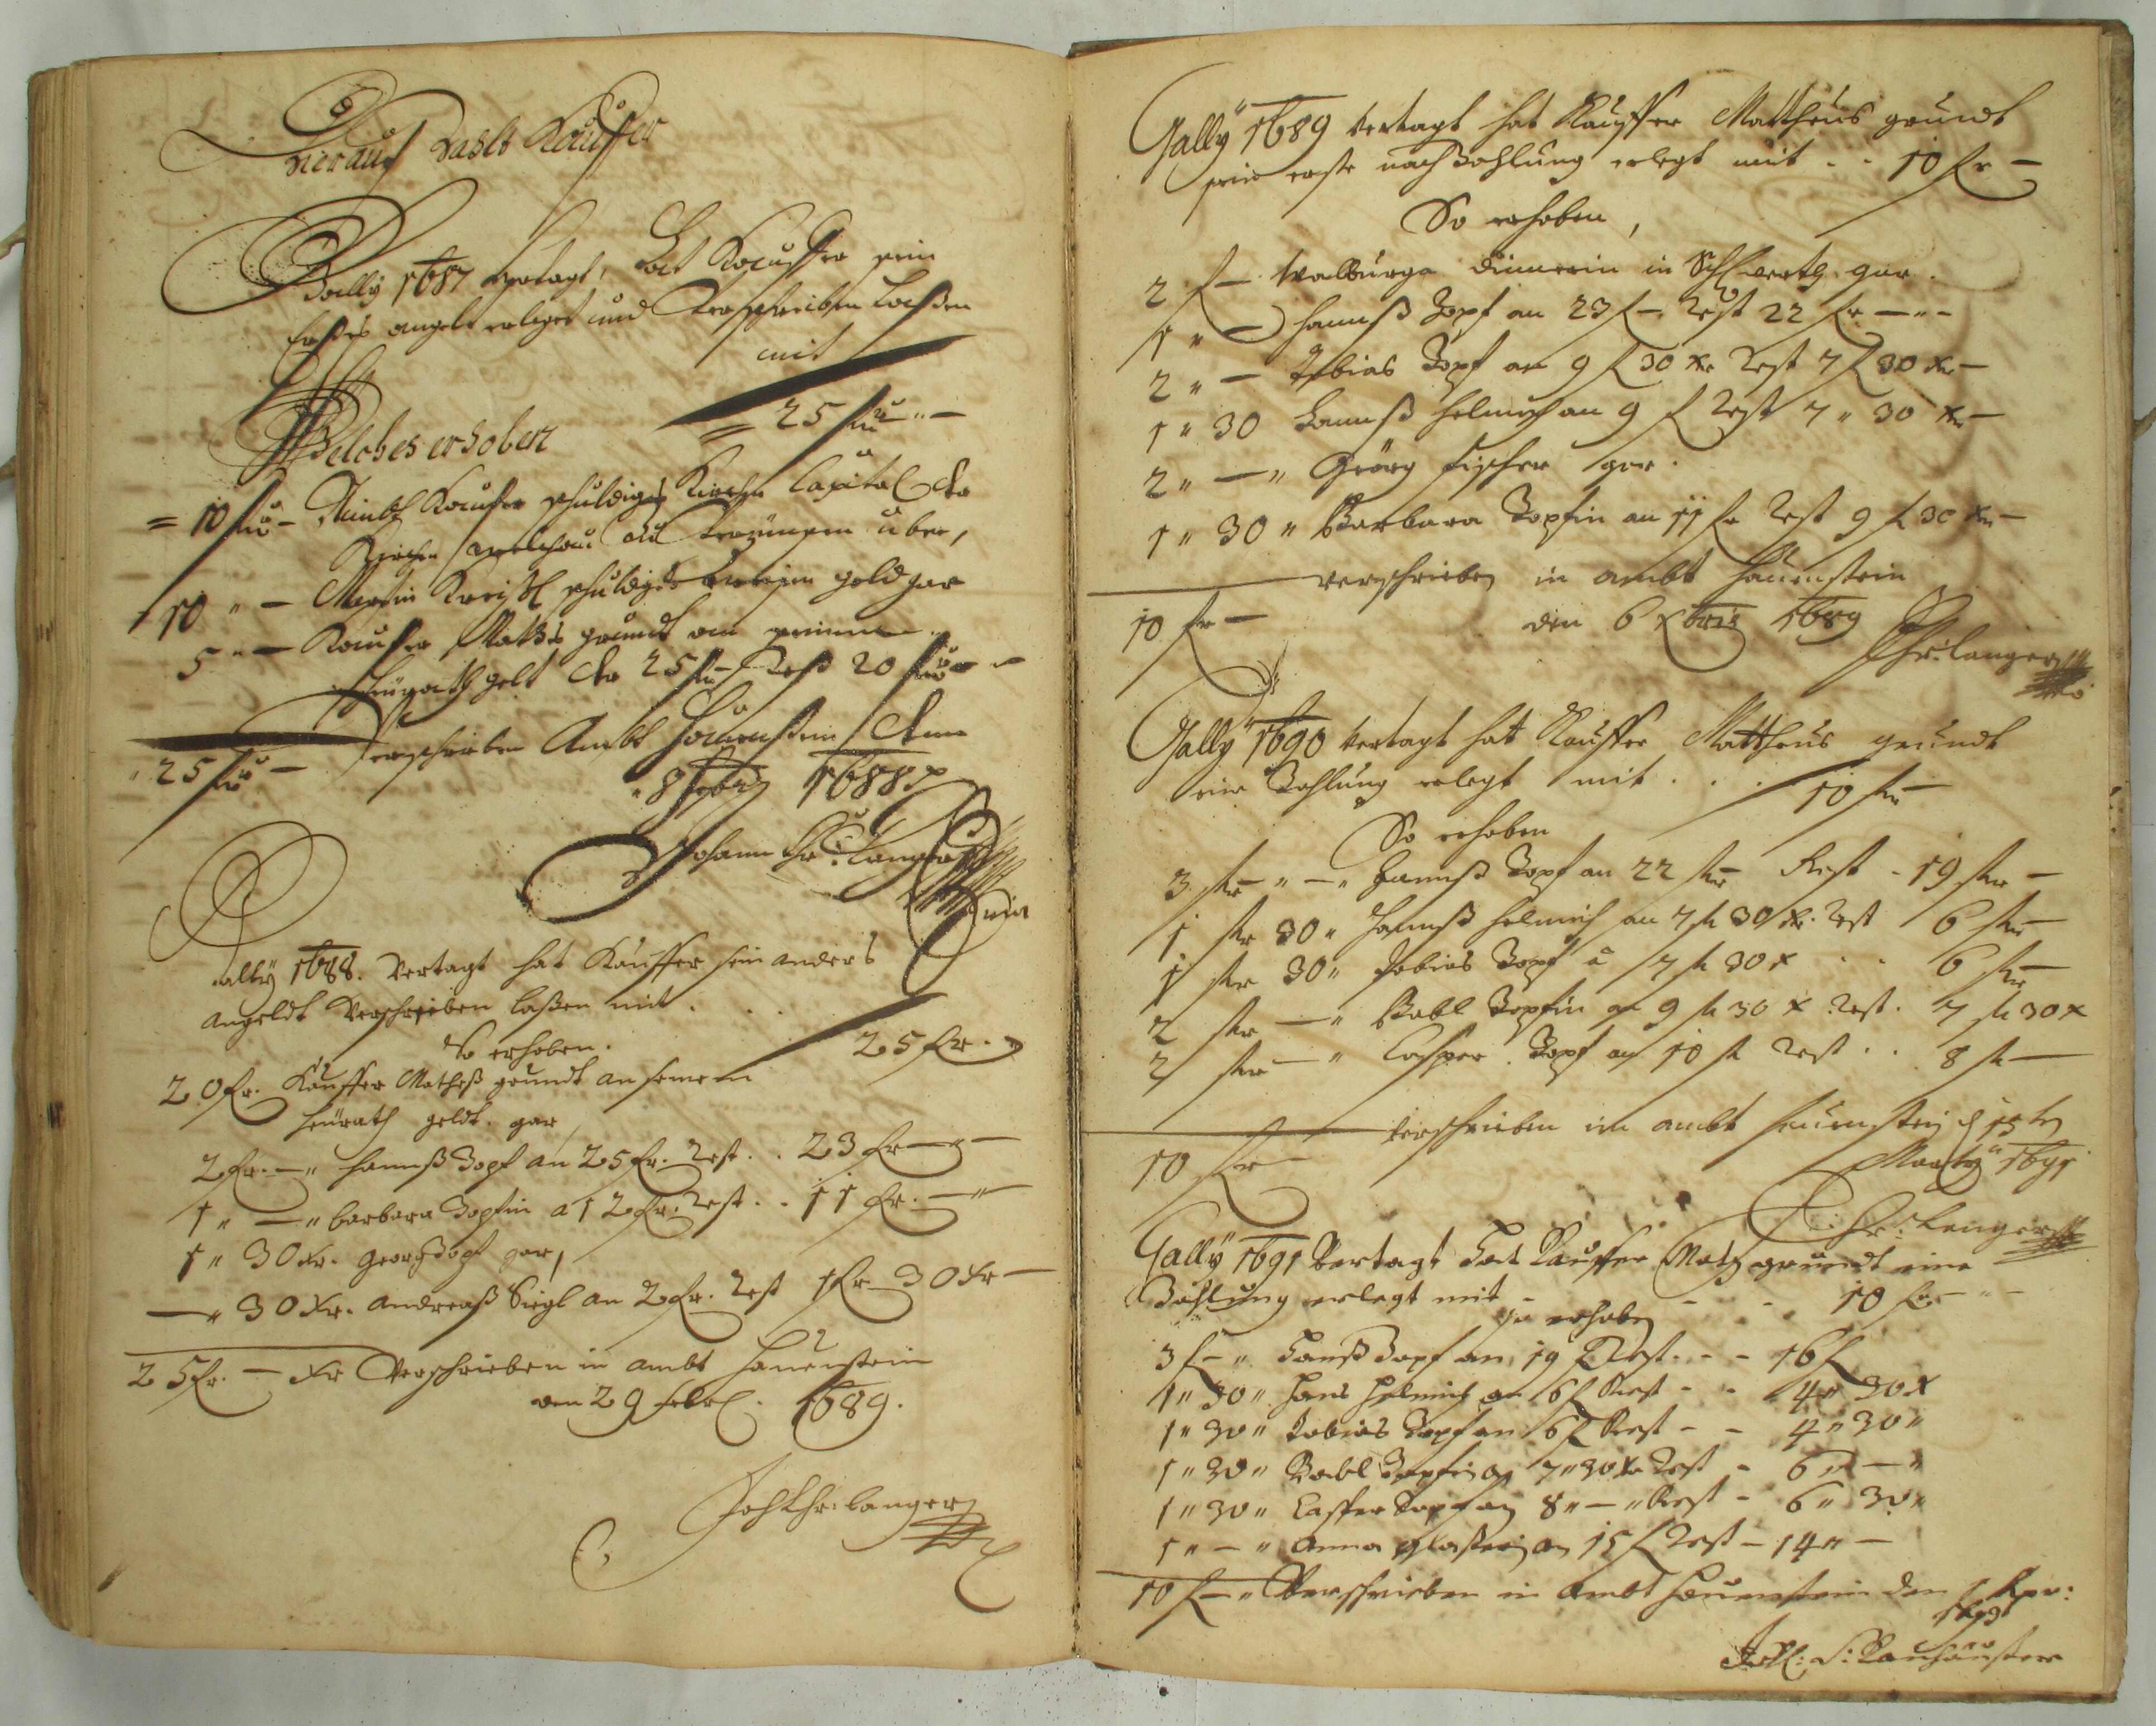 Hierauf Zahlt Kauffer
Gally 1687 vertagt, hat Kauffer sein
Erstes angelt erleget und verschreiben laßen
mit
= 25 fl " —
Welches erhoben
= 10 fl — Kauffer schuldiges Kirchen Capital
Kirchen über,
10 " — Kreißl schuldiges geld gar
5 " — Kauffer Mathes grundt an seinem
Heürath gelt 25 fl — Rest 20 fl — "
25 fl — Verschrieben Ambt Hauenstein den
8 1688
Johann Chr: Langer
Gally 1688. Vertagt hat Kauffer sein anders
angeldt Verschreiben laßen mit . . .
25 fr. "
So erhoben.
20 fr. Kauffer Matheß grundt an seinem
heürath geldt. gar,
2 fr. — " hannß Zopf an 25 fr. Rest . . 23 fr — " —
1 " — " barbara Zopfin a 12 fr. Rest . . 11 fr. — " —
1 " 30 xr. Georg Zopf gar,
— " 30 xr. andreaß Siegl an 2 fr. Rest 1 fr 30 xr —
25 fr. — xr Verschrieben in ambt Hauenstein
den 29 febr. 1689.
Joh Chr: langer
Gally 1689 vertagt hat Kauffer Mattheus grundt
sein erste nach Zahlung erlegt mit . . 10 fr —
So erhoben,
2 f — Walburga in gar.
1 " — hannß Zopf an 23 f — Rest 22 fr — " —
2 " — Tobias Zopf an 9 f 30 xr Rest 7 f 30 xr —
1 " 30 hannß helmich an 9 f Rest 7 " 30 xr —
2 " — " Georg fischer gar.
1 " 30 " Barbara Zopfin an 11 fr Rest 9 f 30 xr —
10 fr — verschrieben in ambt Hauenstein
den 6 xbris 1689
Chr: langer
Gally 1690 Vertagt hat Kauffer Mattheus grundt
ein Zahlung erlegt mit . . . 10 fr —
So erhoben
3 fr — " — " hannß Zopf an 22 fr Rest - 19 fr —
1 fr 30 " hannß helmich an 7 fl 30 xr. Rest 6 fr —
1 fr 30 " Tobias Zopf a 7 fl 30 x . . 6 fr —
2 fr — " Babl Zopfin an 9 fl 30 x Rest. 7 fl 30 x
2 fr — " Casper Zopf an 10 fl Rest . . 8 fl —
10 fr — verschrieben im ambt hauenstein d 15 ten
Marty 1691
Chr: Langer
Gally 1691 Vertagt hat Kauffer Math grundt eine
Zahlung erlegt mit - - - 10 fr — " —
So erhoben
3 f — " hanß Zopf an 19 f Rest - - 16 f
1 " 30 " hans helmich an 6 f Rest - - 4 " 30 x
1 " 30 " Tobias Zopf an 6 f Rest - - 4 " 30 "
1 " 30 " Babl Zopfin an 7 " 30 xr Rest - 6 " — "
1 " 30 " Casper Zopf an 8 " — " Rest - 6 " 30 "
1 " — " Anna an 15 f Rest - 14 " —
10 f — " Verschrieben in Ambt Hauenstein den Apr: